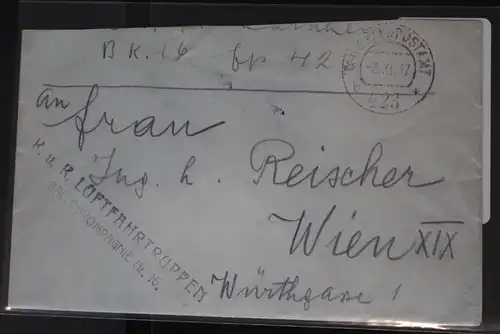 BK. 16 fp 42
-8.XI.17
423
An
Frau
Ing. h. Reischer
Wien XIX
Würthgasse 1
K. u. K. LUFTFAHRTRUPPEN
BALLONKOMPAGNIE Nr. 16.